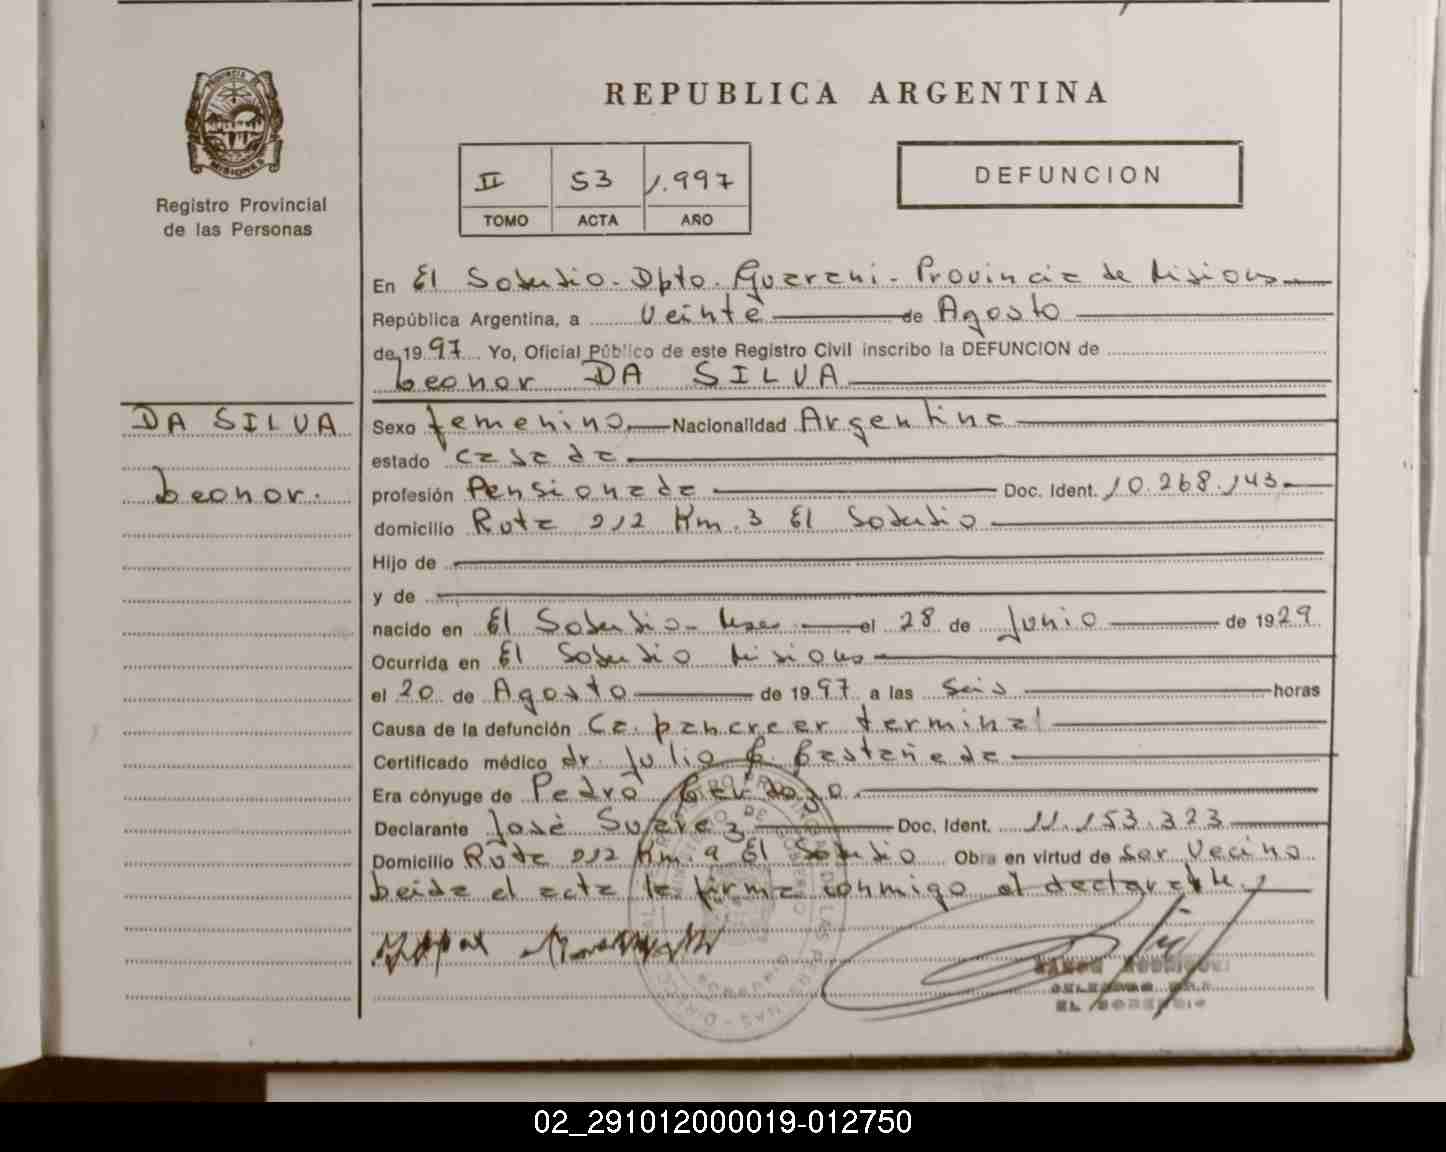 REPUBLICA ARGENTINA
PROVINCIA DE
MISIONES
Registro Provincial
de las Personas
II 53 1.997
TOMO ACTA AÑO
DEFUNCION
En El Soberbio - Dpto. Guarani - Provincia de Misiones
República Argentina, a Veinte de Agosto
de 1997 Yo, Oficial Público de este Registro Civil inscribo la DEFUNCION de
Leonor DA SILVA
DA SILVA
Leonor.
Sexo femenino Nacionalidad Argentina
estado casada
profesión Pensionada Doc. Ident. 10.268.143
domicilio Ruta 212 Km. 3 El Soberbio
Hijo de
y de
nacido en El Soberbio - Mnes el 28 de Junio de 1929
Ocurrida en El Soberbio Misiones
el 20 de Agosto de 1997 a las Seis horas
Causa de la defunción Ca. pancreas terminal
Certificado médico dr. Julio C. Castañeda
Era cónyuge de Pedro Cardozo
Declarante José Suarez Doc. Ident. 11.153.323
Domicilio Ruta 212 Km. 9 El Soberbio Obra en virtud de Ser Vecino
Leida el acta la firma conmigo el declarante
EL SOBERBIO
02_291012000019-012750